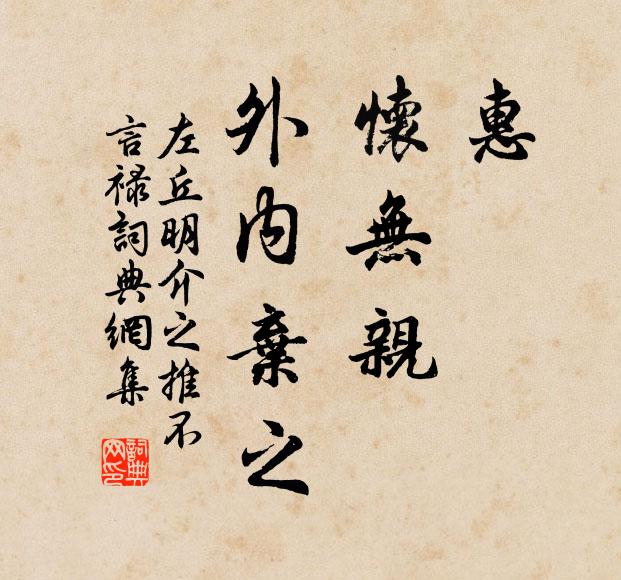 惠
懷無親
外内棄之
左丘明介之推不
言祿詞典網集
詞典
网印